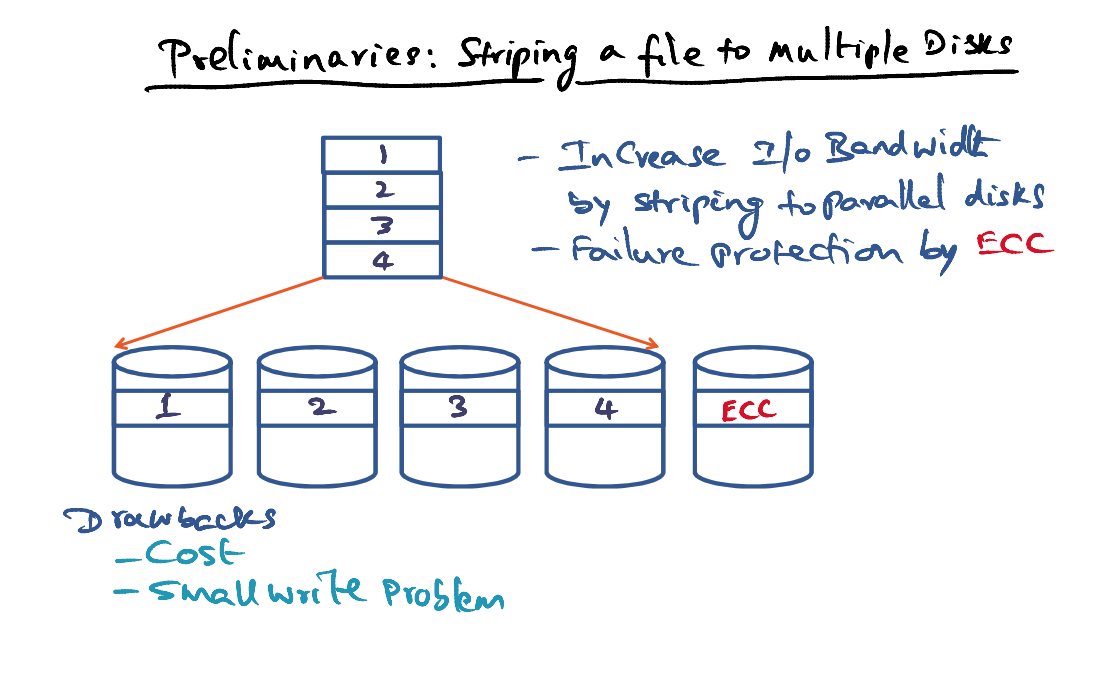 Preliminaries: Striping a file to multiple Disks
1
2
3
4
- Increase I/o Bandwidth
by striping to parallel disks
- Failure protection by ECC
1 2 3 4 ECC
Drawbacks
- Cost
- Small write Problem